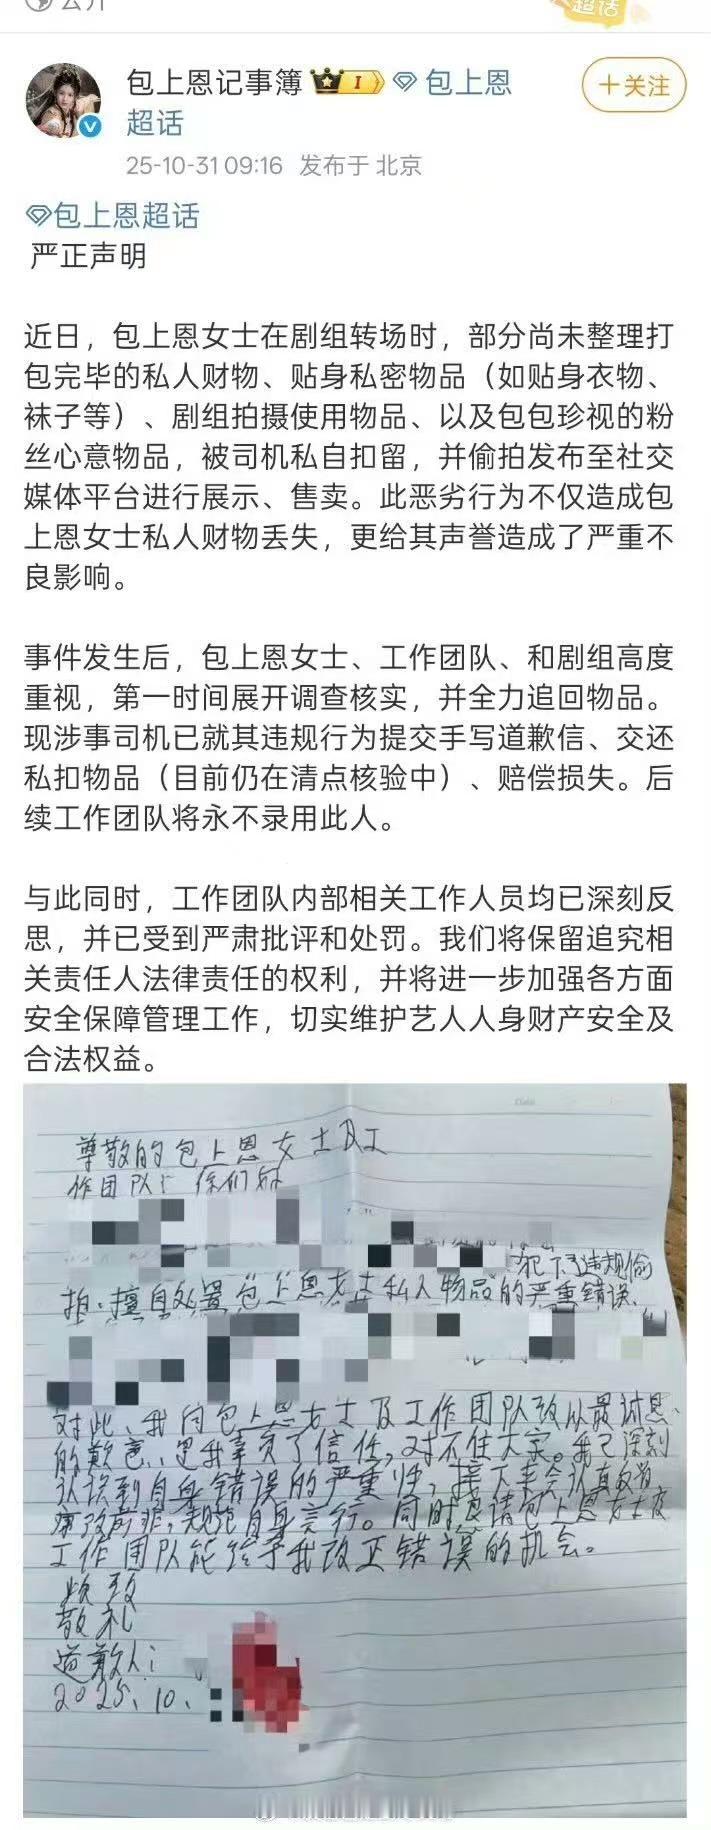 公开
超话
包上恩记事簿 I 包上恩
超话
+关注
25-10-31 09:16 发布于 北京
包上恩超话
严正声明
近日，包上恩女士在剧组转场时，部分尚未整理打
包完毕的私人财物、贴身私密物品（如贴身衣物、
袜子等）、剧组拍摄使用物品、以及包包珍视的粉
丝心意物品，被司机私自扣留，并偷拍发布至社交
媒体平台进行展示、售卖。此恶劣行为不仅造成包
上恩女士私人财物丢失，更给其声誉造成了严重不
良影响。
事件发生后，包上恩女士、工作团队、和剧组高度
重视，第一时间展开调查核实，并全力追回物品。
现涉事司机已就其违规行为提交手写道歉信、交还
私扣物品（目前仍在清点核验中）、赔偿损失。后
续工作团队将永不录用此人。
与此同时，工作团队内部相关工作人员均已深刻反
思，并已受到严肃批评和处罚。我们将保留追究相
关责任人法律责任的权利，并将进一步加强各方面
安全保障管理工作，切实维护艺人人身财产安全及
合法权益。
尊敬的包上恩女士及工
作团队：你们好
犯下违规偷
拍、擅自处置包上恩女士私人物品的严重错误、
对此、我向包上恩女士及工作团队致以最诚恳
的歉意、是我辜负了信任，对不住大家。我已深刻
认识到自身错误的严重性，接下来会认真反省
痛改前非，规范自身言行。同时恳请包上恩女士及
工作团队能给予我改正错误的机会。
此致
敬礼
道歉人：
2025、10、